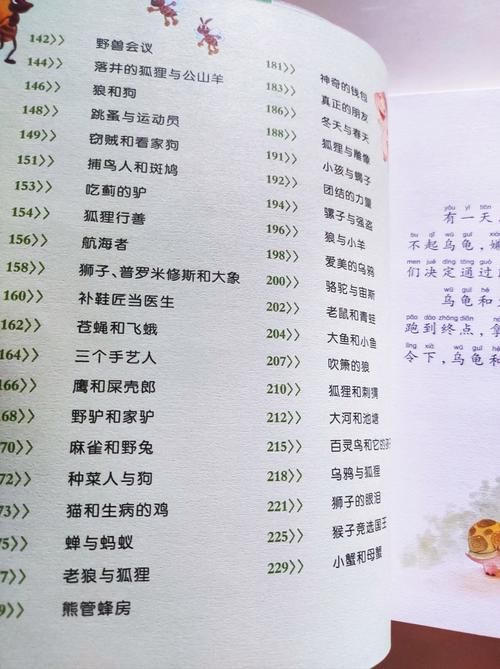 142》 野兽会议
144》 落井的狐狸与公山羊
146》 狼和狗
148》 跳蚤与运动员
149》 窃贼和看家狗
151》 捕鸟人和斑鸠
153》 吃蓟的驴
154》 狐狸行善
156》 航海者
158》 狮子、普罗米修斯和大象
160》 补鞋匠当医生
162》 苍蝇和飞蛾
164》 三个手艺人
166》 鹰和屎壳郎
168》 野驴和家驴
70》 麻雀和野兔
72》 种菜人与狗
73》 猫和生病的鸡
75》 蝉与蚂蚁
7》 老狼与狐狸
9》 熊管蜂房
181》 神奇的钱包
183》 真正的朋友
186》 冬天与春天
188》 狐狸与雕像
191》 小孩与蝎子
192》 团结的力量
194》 骡子与强盗
196》 狼与小羊
198》 爱美的乌鸦
200》 骆驼与宙斯
202》 老鼠和青蛙
204》 大鱼和小鱼
207》 吹箫的狼
210》 狐狸和刺猬
212》 大河和池塘
215》 百灵鸟和它的孩
218》 乌鸦与狐狸
221》 狮子的眼泪
225》 猴子竞选国王
229》 小蟹和母蟹
yǒu yì tiān
有一天
bu qǐ wū guī
不起乌龟，嫌
men jué dìng tōng guò
们决定通过
wū guī hé
乌龟和
pǎo dào zhōng diǎn
跑到终点，拿
lìng xià wū guī hé
令下，乌龟和